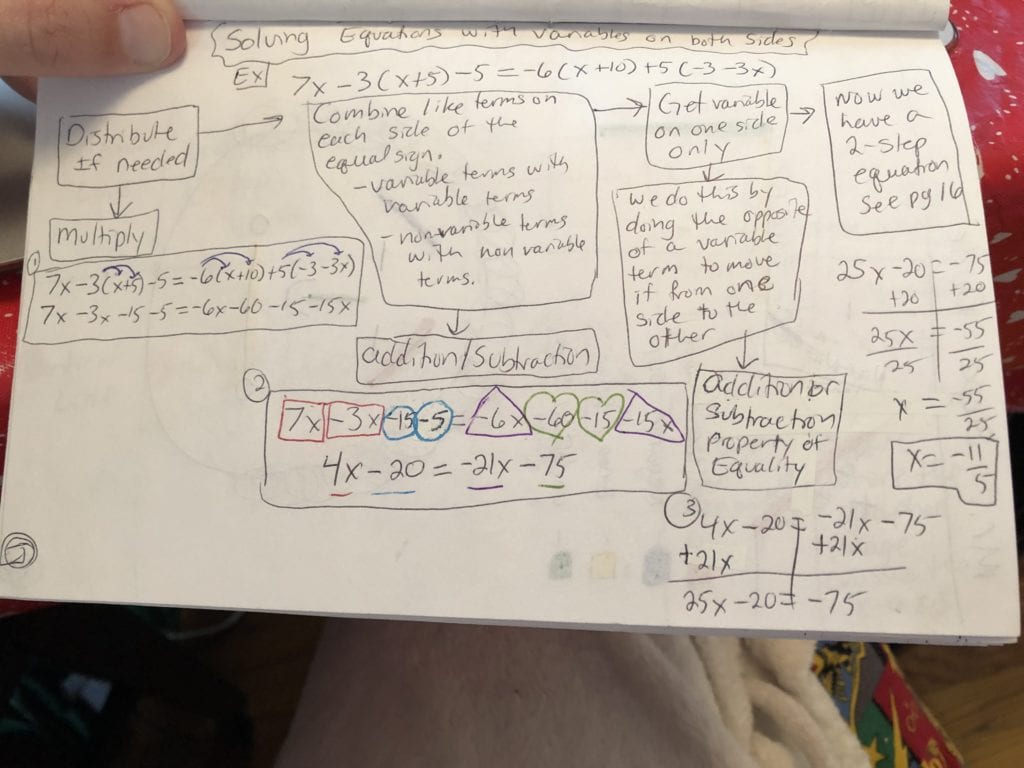 Solving Equations with variables on both sides
Ex
7x - 3(x+5) - 5 = -6(x+10) + 5(-3 - 3x)
Distribute
If needed
multiply
1
7x - 3(x+5) - 5 = -6(x+10) + 5(-3 - 3x)
7x - 3x - 15 - 5 = -6x - 60 - 15 - 15x
Combine like terms on
each side of the
equal sign.
- variable terms with
variable terms
- nonvariable terms
with non variable
terms.
addition/subtraction
2
7x - 3x - 15 - 5 = -6x - 60 - 15 - 15x
4x - 20 = -21x - 75
Get variable
on one side
only
we do this by
doing the opposite
of a variable
term to move
it from one
side to the
other
Addition or
Subtraction
Property of
Equality
3
4x - 20 = -21x - 75
+21x +21x
25x - 20 = -75
Now we
have a
2-step
equation
See pg 16
25x - 20 = -75
+20 +20
25x = -55
25 25
x = -55
25
x = -11
5